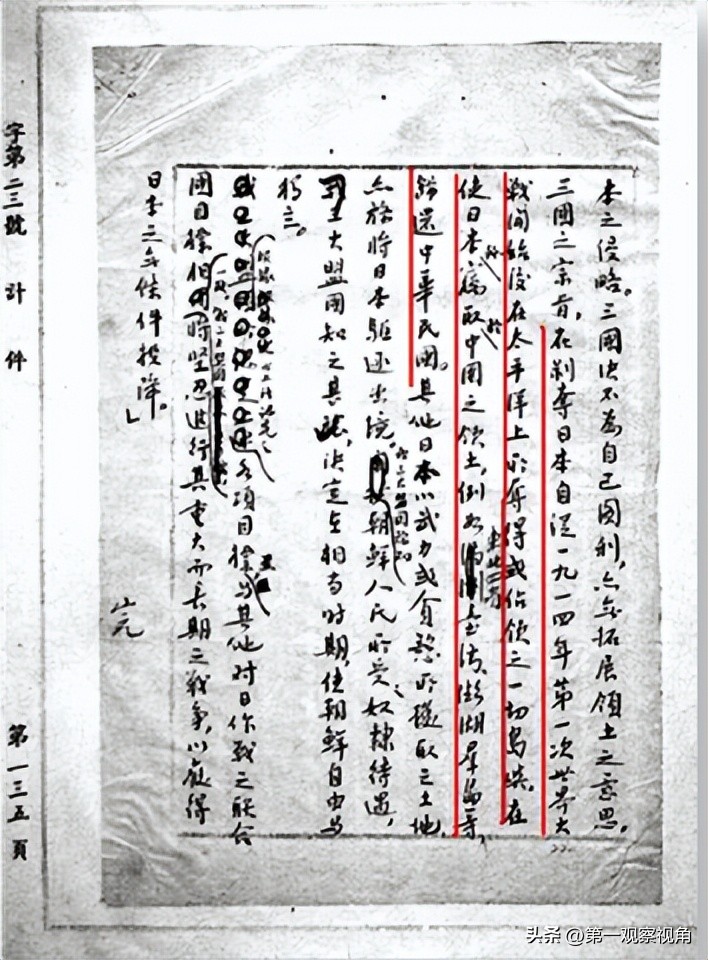 本之侵略。三國决不為自己圖利,亦無拓展領土之意思。
三國之宗旨,在剝奪日本自從一九一四年第一次世界大
戰開始後在太平洋上所奪得或佔領之一切島嶼,在
使日本所竊取於中國之領土,例如東北四省臺灣、澎湖羣島等,
歸還中華民國。其他日本以武力或貪慾所攫取之土地,
亦務將日本驅逐出境。我三大盟國稔知朝鮮人民所受之奴隸待遇,
大盟國知之甚 決定在相當時期,使朝鮮自由與
獨立。
各項目標與其他對日作戰之聯合
國目標 將堅忍進行其重大而長期之戰爭,以獲得
日本之無條件投降。」
完
字第二三號 計 件 第一三五頁
头条 @第一观察视角